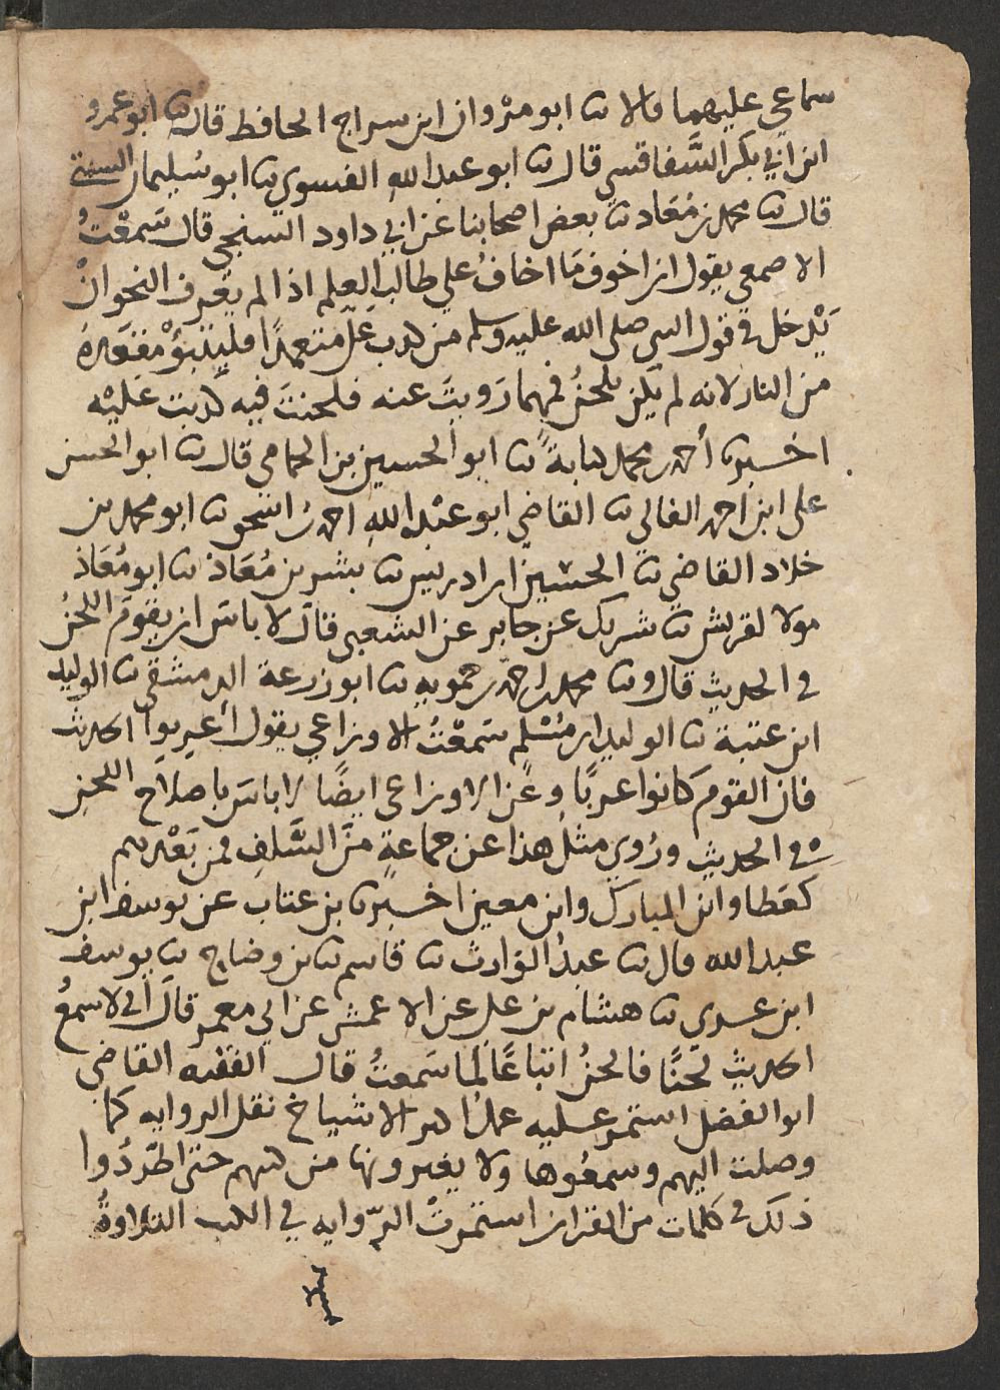 سماعي عليهما قالا نا ابو مروان ابن سراج الحافظ قال نا ابو عمرو
ابن ابي بكر السَّفاقسي قال نا ابو عبد الله الفسوي نا ابو سُليمان البستي
قال نا محمد بن مُعَاذ نا بعض اصحابنا عن ابي داود السنجي قال سَمعْتُ
الاصمعي يقول ان اخوف مَا اخافُ علي طالب العلم اذا لم يعْرف النحو انْ
يَدخل في قول النبي صلى الله عليه وسلم من كذب عَليّ متعمدًا فليتبَوَّؤْ مقعَدَهُ
من النار لانه لم يكن يلحنُ فمهما رَويتَ عنه فلحنتَ فيه كذبت عَليْه
اخبرنا أحمد بن محمد كتابةً نا ابو الحسين بن الحمامي قال نا ابو الحسن
على ابن احمد الفالي نا القاضي ابو عَبْد الله احمد بن اسحق نا ابو محمد بن
خلاد القاضي نا الحسَين ابن ادريس نا بشر بن مُعَاذ نا ابو مُعَاذ
مولا لقريش نا شريك عن جابر عن الشعبي قالَ لا باسَ ان يقومَ اللحْنُ
في الحديث قال ونا محمد بن احمد بن حمويه نا ابو زرعة الدمشقي نا الوليد
ابن عتبة نا الوليد ابن مُسْلم سَمعْتُ الاوزاعي يقول أعربوا الحديث
فان القومَ كانوا عربًا وعَن الاوزاعي ايضًا لا باسَ باصلاح اللحن
في الحديث ورُوي مثلُ هذا عن جماعةٍ منَ السَّلفِ فمن بَعْدهم
كعَطا وابن المبارك وابن معين اخبرنا بن عتاب عن يوسف ابن
عبد الله قال نا عبدُ الوارث نا قاسم نا بن وضاح نا يوسف
ابن عدي نا هشام بن علي عن الاعمش عن ابي معمر قالَ اني لاسمعُ
الحديث لحْنًا فالحنُ اتباعًا لما سَمعتُ قال الفقيه القاضي
ابو الفضل استمر عليه عملُ اكثر الاشياخ نقل الروايه كما
وصلت اليهم وسمعُوها ولا يغيرونها من كتبهم حتى اطّردُوا
ذلك في كلمات من القران استمرتْ الرّوايه في الكتب التلاوةُ